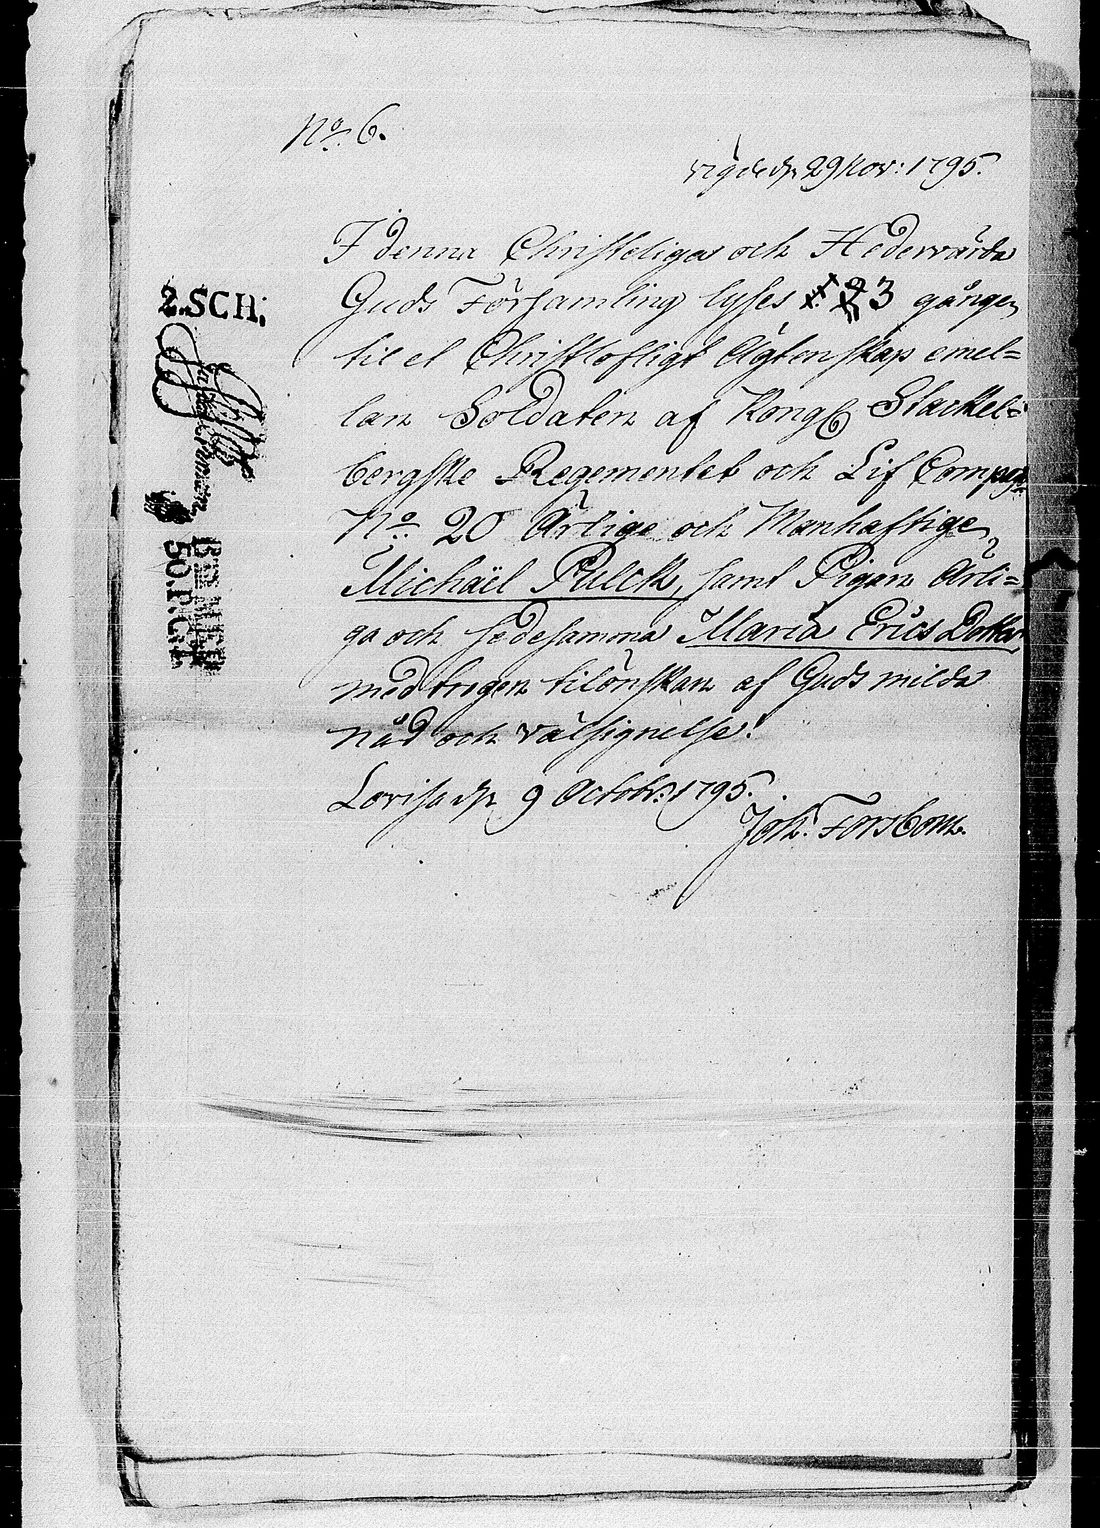 No. 6.
vigde d. 29 Nov: 1795.
I denna Christeliga och Hedervärda
Guds Församling lyses 3 gången
til et Christlofligt Ägtenskap emel=
lan Soldaten af Kongl Stackel=
bergske Regementet och Lif Comp
No 20 Ärlige och Manhaftige
Michaël Pulck, samt Pigan Ärli=
ga och sedesamma Maria Erics Dotter
med trogen tilönskan af Guds milda
nåd och välsignelse!
Lovisa d. 9 Octobr: 1795.
Joh. Forsbom.
2.SCH:
BEVILLN:
50.P.Ct